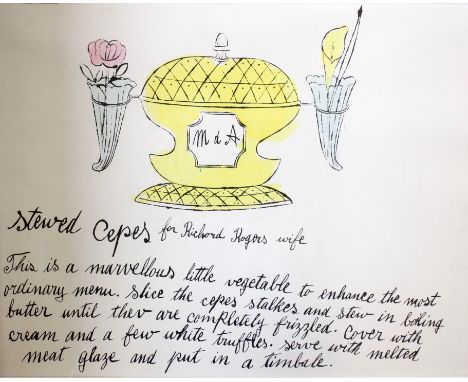 M d A
Stewed Cepes for Richard Rogers wife
This is a marvellous little vegetable to enhance the most
ordinary menu. Slice the cepes stalkes and stew in boiling
butter until they are completely frizzled. Cover with
cream and a few white truffles. Serve with melted
meat glaze and put in a timbale.